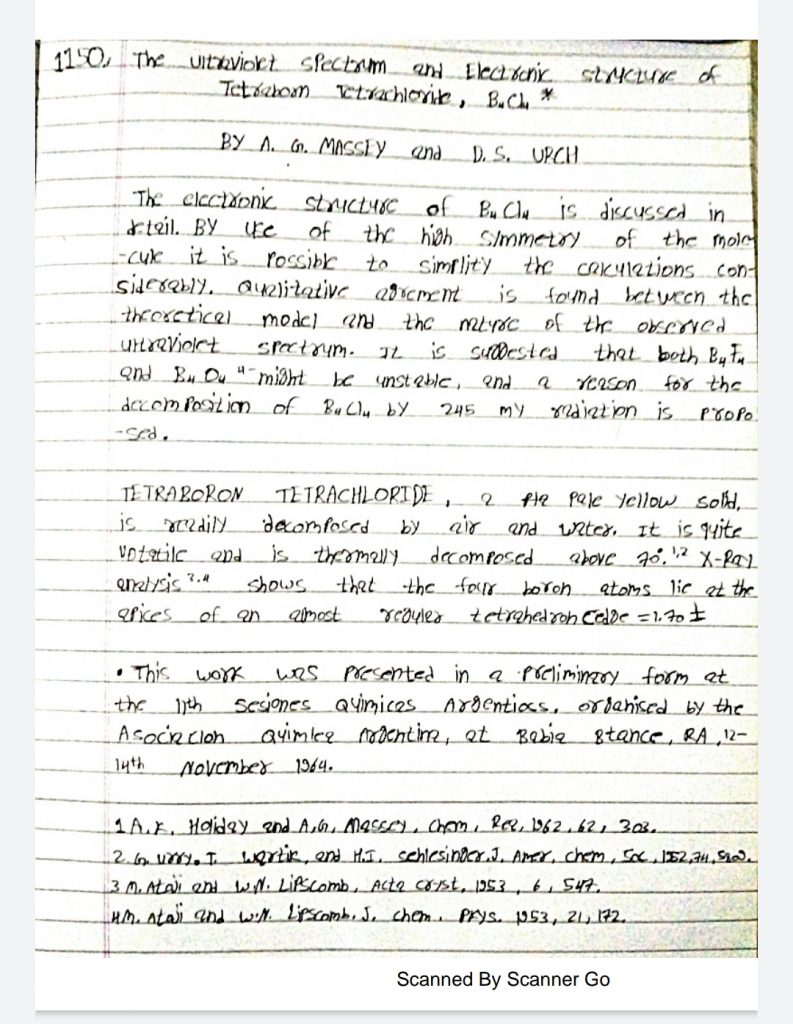 1150, The ultraviolet spectrum and Electronic structure of
Tetraborn Tetrachloride, B4Cl4 *
BY A. G. MASSEY and D. S. URCH
The electronic structure of B4Cl4 is discussed in
detail. BY use of the high symmetry of the mole
-cule it is possible to simplity the calculations con-
siderably. Qualitative agrement is found between the
theoretical model and the nature of the observed
ultraviolet spectrum. It is suggested that both B4F4
and B4O4 4- might be unstable, and a reason for the
decomposition of B4Cl4 by 245 my radiation is propo
-sed.
TETRABORON TETRACHLORIDE, a pale yellow solid,
is readily decomposed by air and water. It is quite
Votatile and is thermally decomposed above 70°.1,2 X-Ray
analysis 3,4 shows that the four boron atoms lie at the
apices of an almost reguler tetrahedron edge = 1.70 ±
• This work was presented in a preliminary form at
the 11th Sesiones Quimicas Argentioss, organised by the
Asociacion Quimlea Argentina, at Babia Btance, RA, 12-
14th November 1964.
1 A.K. Holiday and A.G. Massey, Chem, Rev, 1962, 62, 303.
2 G. Urry, T. Wartik, and H.I. Schlesinger. J. Amer, chem, Soc, 1952, 74, 5809.
3 M. Ataji and W.N. Lipscomb, Acta Cryst, 1953, 6, 547.
4 M. Ataji and W.N. Lipscomb, J. chem. Phys. 1953, 21, 172.
Scanned By Scanner Go